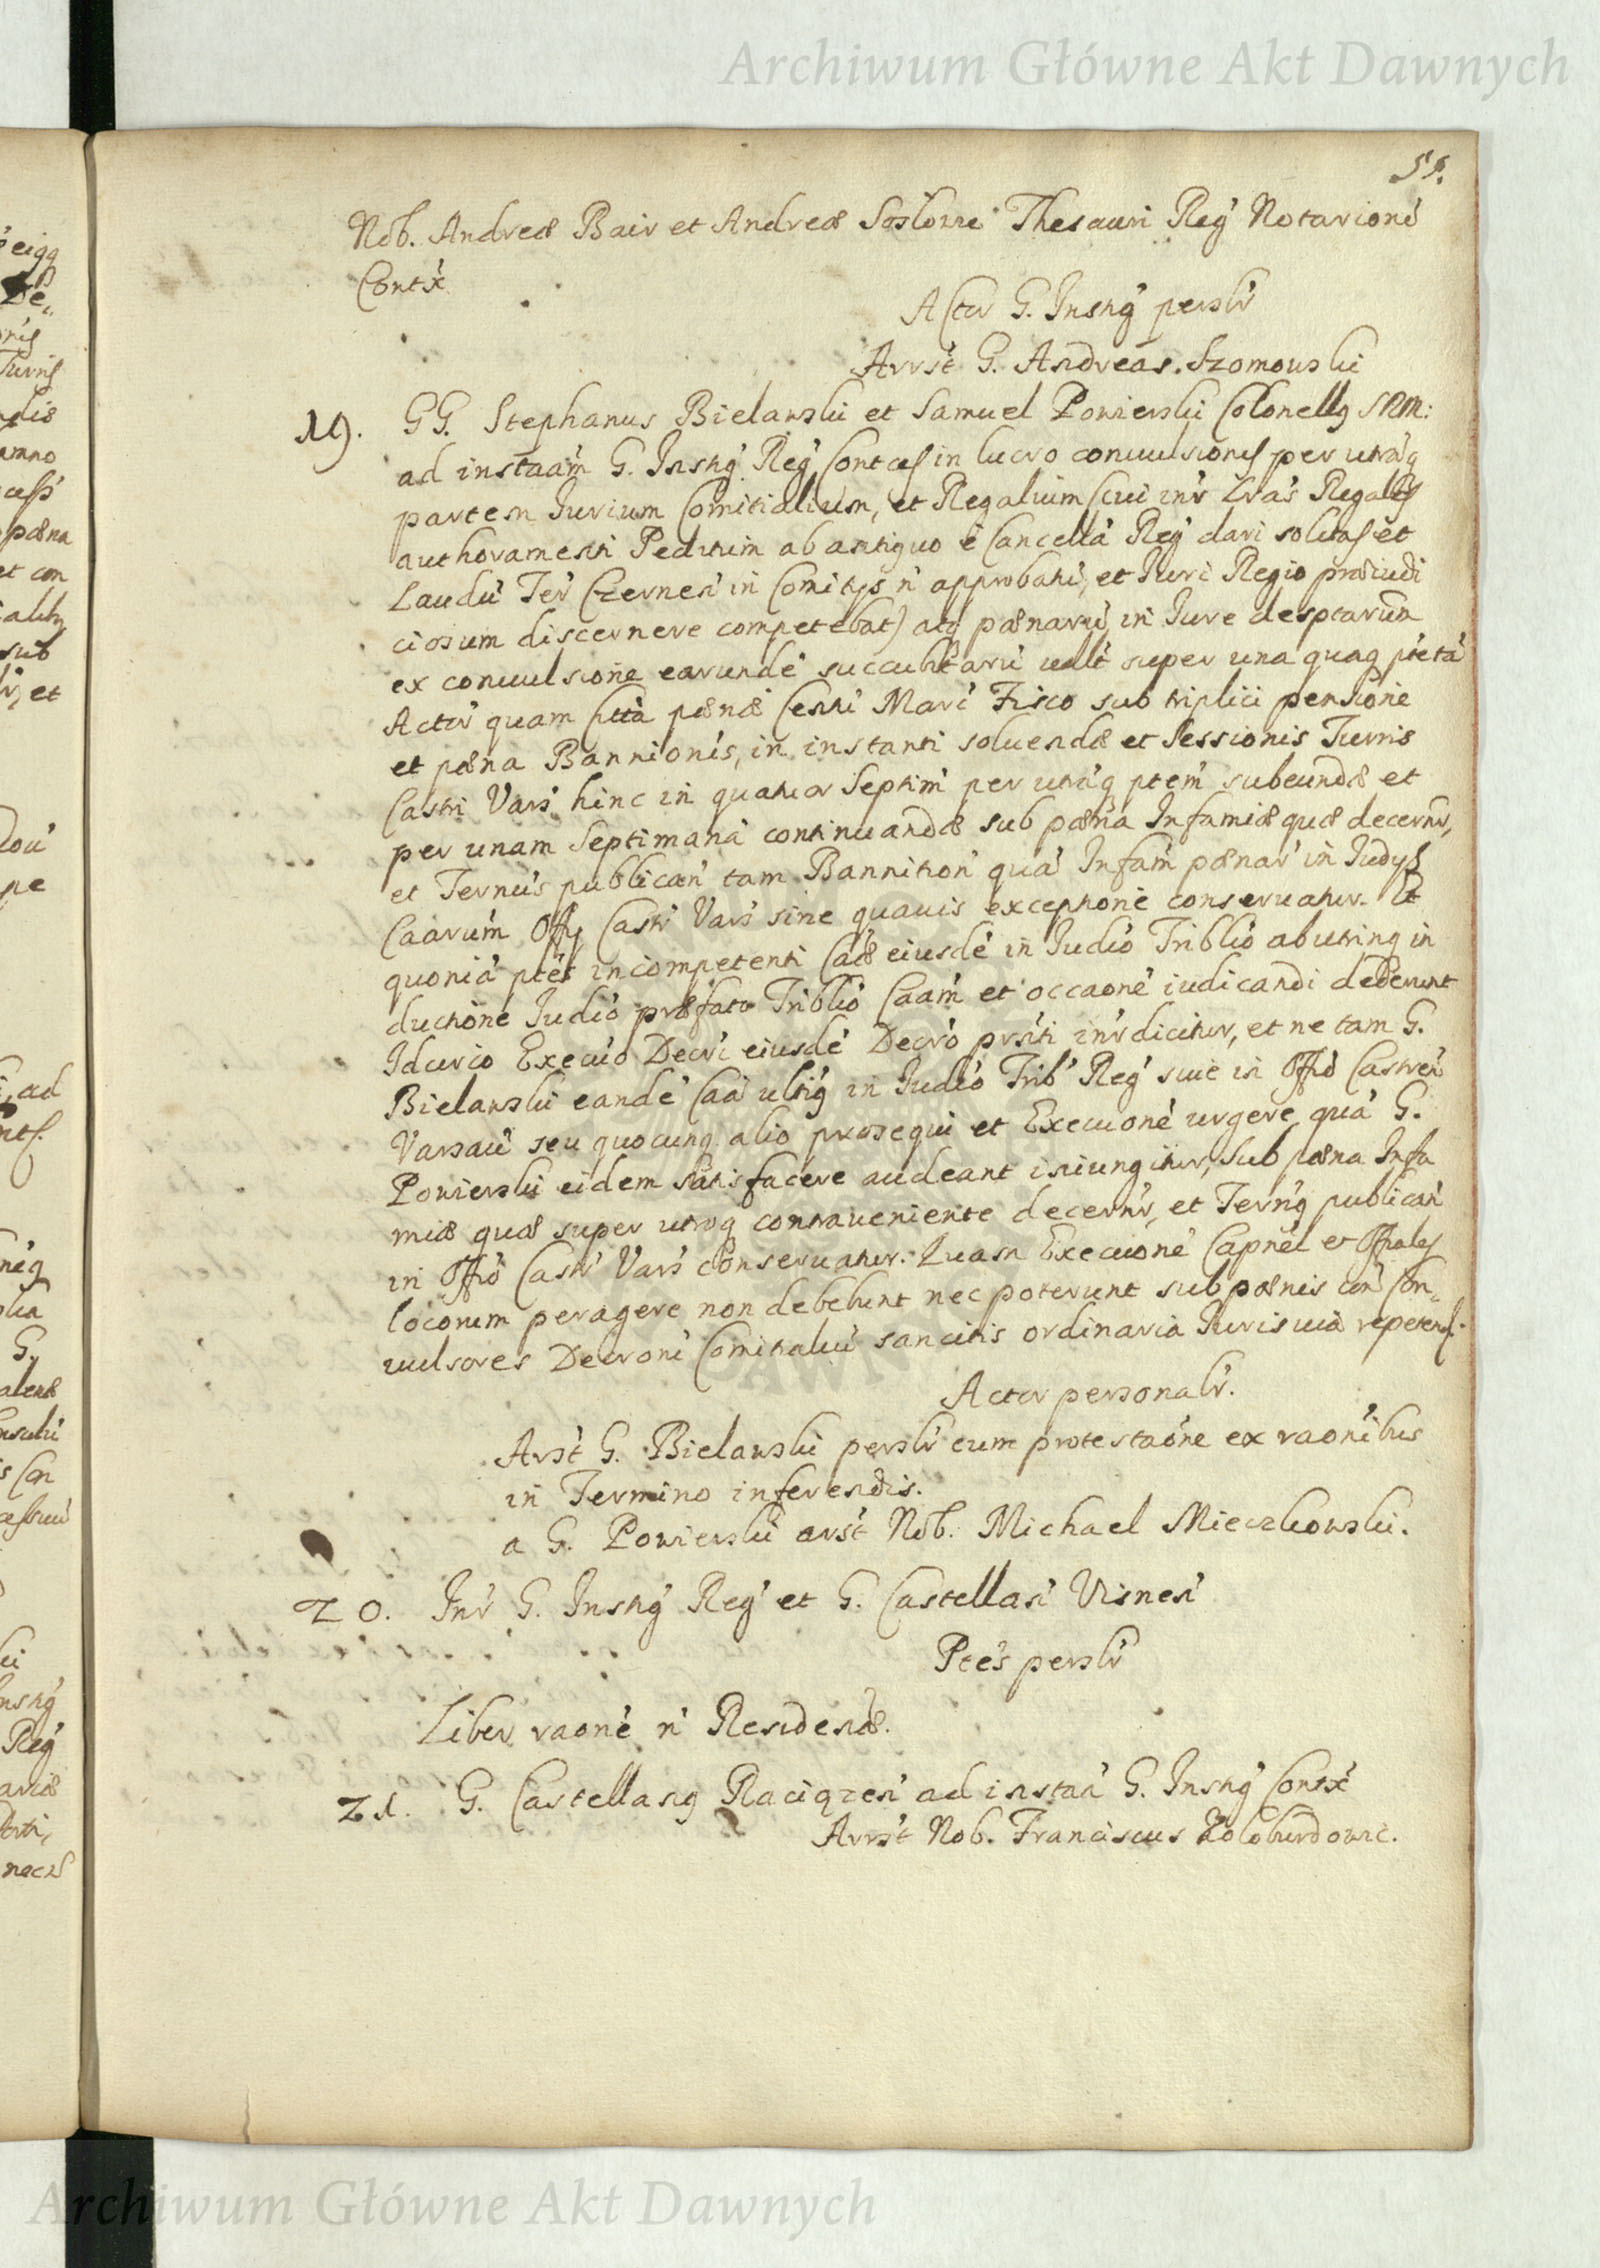 Archiwum Główne Akt Dawnych
51.
Nob. Andreæ Bair et Andreæ Thesauri Reg' Notarionũ
Contx̃
Actor G. Instig' perslr̃
Arrst̃ G. Andreas Szomowski
19. GG. Stephanus Bielawski et Samuel Powierski Colonellq SRM:
ad instaãm G. Instig' Reg' in lucro conuulsionis per utrãq
partem Iurium Comitialium, et Regalium (cui inr̃ Lrãs Regales
authoramenti Peditum ab antiquo è Cancellã Reg' dari solitas et
Laudũ Ter' Czernen' in Comitijs ñ approbatũ, et Iuri Regio præiudi
ciosum discernere competebat) atq pænarũ in Iure desptarum
ex conuulsione earundẽ succubitarũ super una quaq ptẽ tã
Actori quam pænæ Centũ Marc' Fisco sub triplici pensione
et pæna Bannionis, in instanti soluendæ et Sessionis Turris
Castri Vars' hinc in quatuor Septim' per utrãq ptem subeundæ et
per unam Septimanã continuandæ sub pæna Infamiæ quæ decernr̃,
et Ternũs publican' tam Bannition' quã Infam' pænar' in Iudijs
Caarum Offij Castr' Vars' sine quauis exceptione conseruatur. Et
quoniã ptẽs incompetenti Cãæ eiusdẽ in Iudiõ Tribliõ ab utrinq in
ductione Iudiõ præfato Tribliõ Caam et occaonẽ iudicandi dederunt
Idcirco Execuio Decri eiusdẽ Decrõ prsñti inr̃dicitur, et ne tam G.
Bielawski eandẽ Caã ultiq in Iudiõ Trib' Reg' siue in Offiõ Castren'
Varsauiẽ seu quocunq alio prosequi et Execuionẽ urgere quã G.
Powierski eidem satisfacere audeant iniungitur, sub pæna Infa
miæ quæ super utroq contraueniente decernr̃, et Ternq publican'
in Offiõ Castr' Vars' conseruatur. Quam Execuionẽ Capnẽl et Offiales
locorum peragere non debebunt nec poterunt sub pænis con' Con„
uulsores Decronũ Comitialiũ sancitis ordinaria Iuris uia repetend'.
Actor personalr̃.
Arst̃ G. Bielawski perslr̃ cum protestaõne ex raonibus
in Termino inferendis.
a G. Powierski arst̃ Nob. Michael Mieczkowski.
20. Inr̃ G. Instig' Reg' et G. Castellan' Visnen'
Ptẽs perslr̃
Liber raonẽ ñ Residenæ.
21. G. Castellanq Raciązen' ad instan' G. Instig' Contx̃
Arrst̃ Nob. Franciscus Zoloburdowic.
Archiwum Główne Akt Dawnych